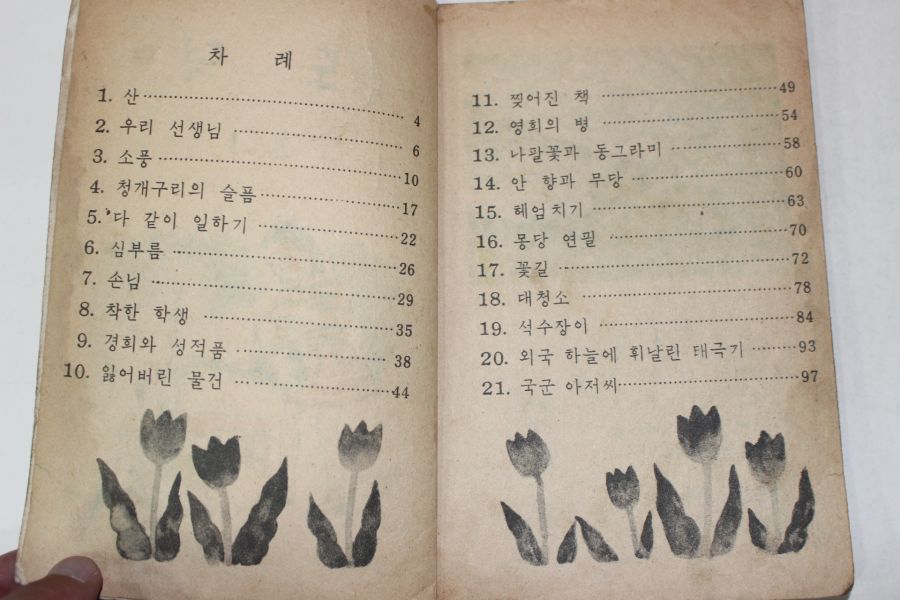 차 례
1. 산 4
2. 우리 선생님 6
3. 소풍 10
4. 청개구리의 슬픔 17
5. 다 같이 일하기 22
6. 심부름 26
7. 손님 29
8. 착한 학생 35
9. 경희와 성적품 38
10. 잃어버린 물건 44
11. 찢어진 책 49
12. 영희의 병 54
13. 나팔꽃과 동그라미 58
14. 안 향과 무당 60
15. 헤엄치기 63
16. 몽당 연필 70
17. 꽃길 72
18. 대청소 78
19. 석수장이 84
20. 외국 하늘에 휘날린 태극기 93
21. 국군 아저씨 97